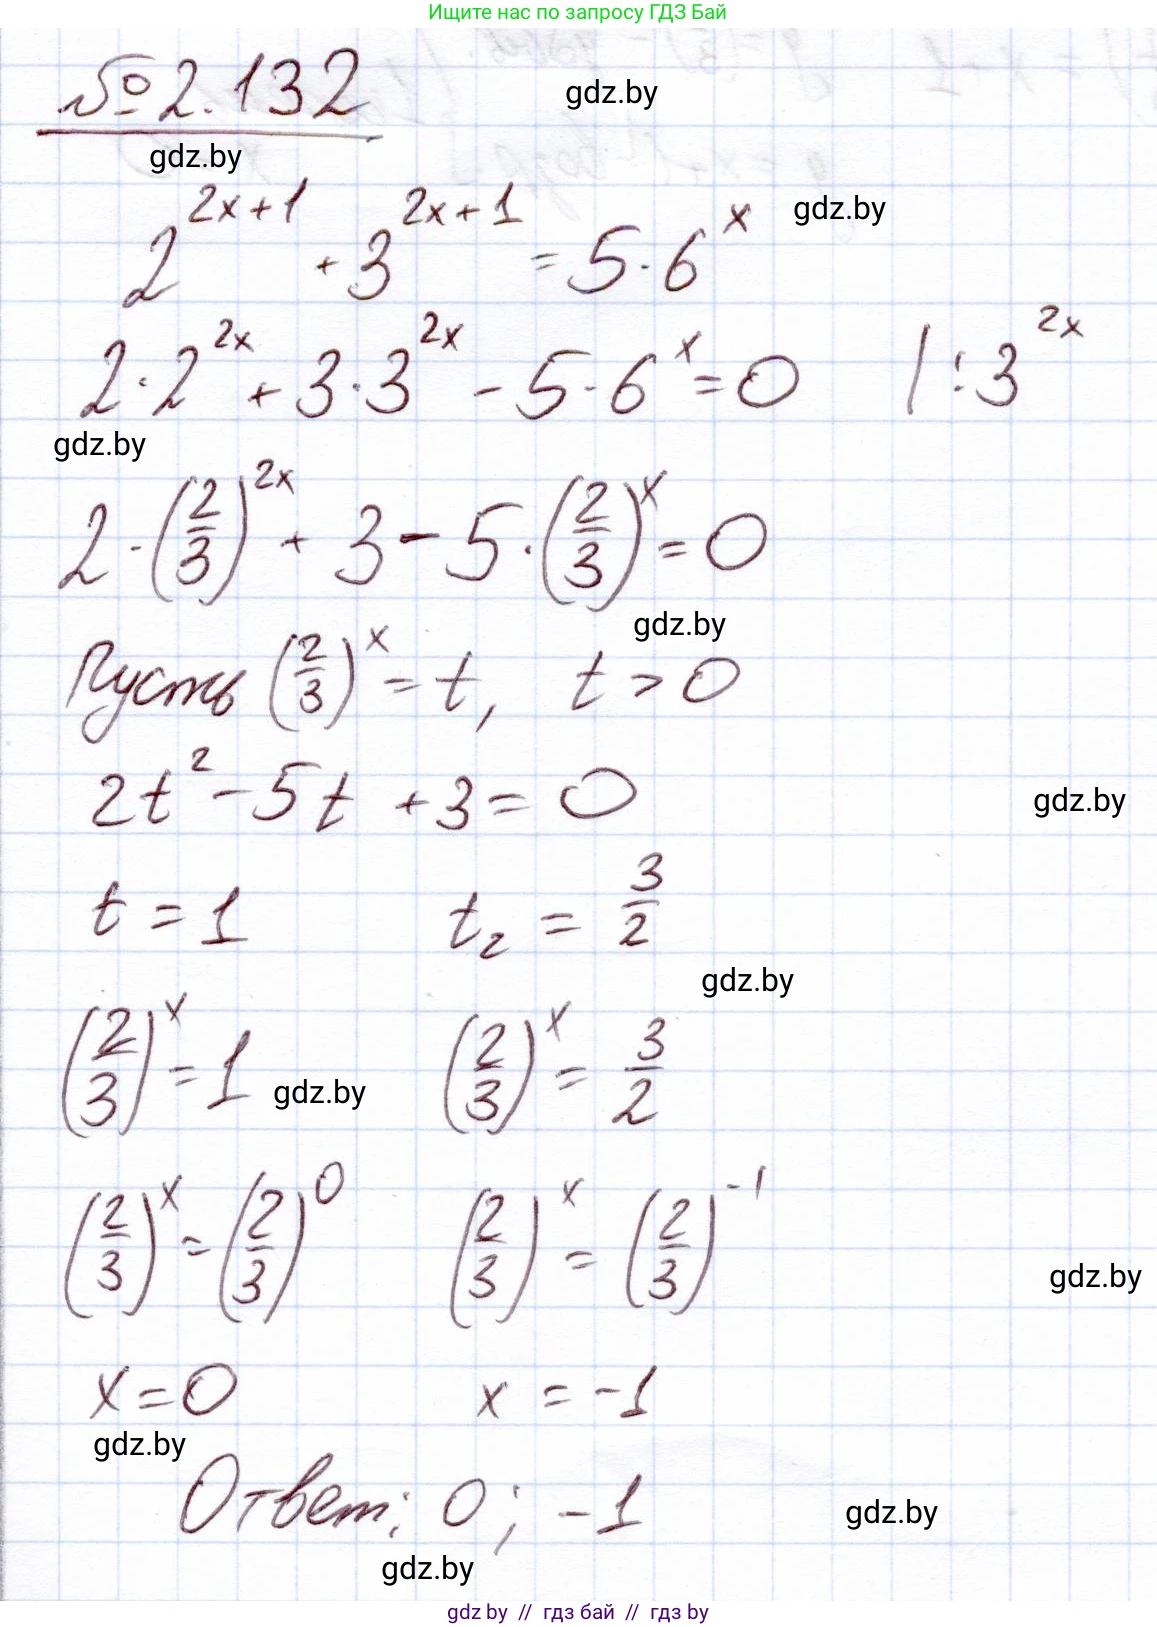 Ищите нас по запросу ГДЗ Бай
№ 2.132
gdz.by
gdz.by
2^{2x+1} + 3^{2x+1} = 5·6^x
gdz.by
2·2^{2x} + 3·3^{2x} - 5·6^x = 0 | : 3^{2x}
gdz.by
2·(2/3)^{2x} + 3 - 5·(2/3)^x = 0
gdz.by
Пусть (2/3)^x = t, t > 0
2t^2 - 5t + 3 = 0
gdz.by
t = 1 t_2 = 3/2
gdz.by
(2/3)^x = 1 (2/3)^x = 3/2
gdz.by
(2/3)^x = (2/3)^0 (2/3)^x = (2/3)^{-1}
gdz.by
x = 0 x = -1
gdz.by
Ответ: 0; -1
gdz.by
gdz.by
gdz by // гдз бай // gdz by